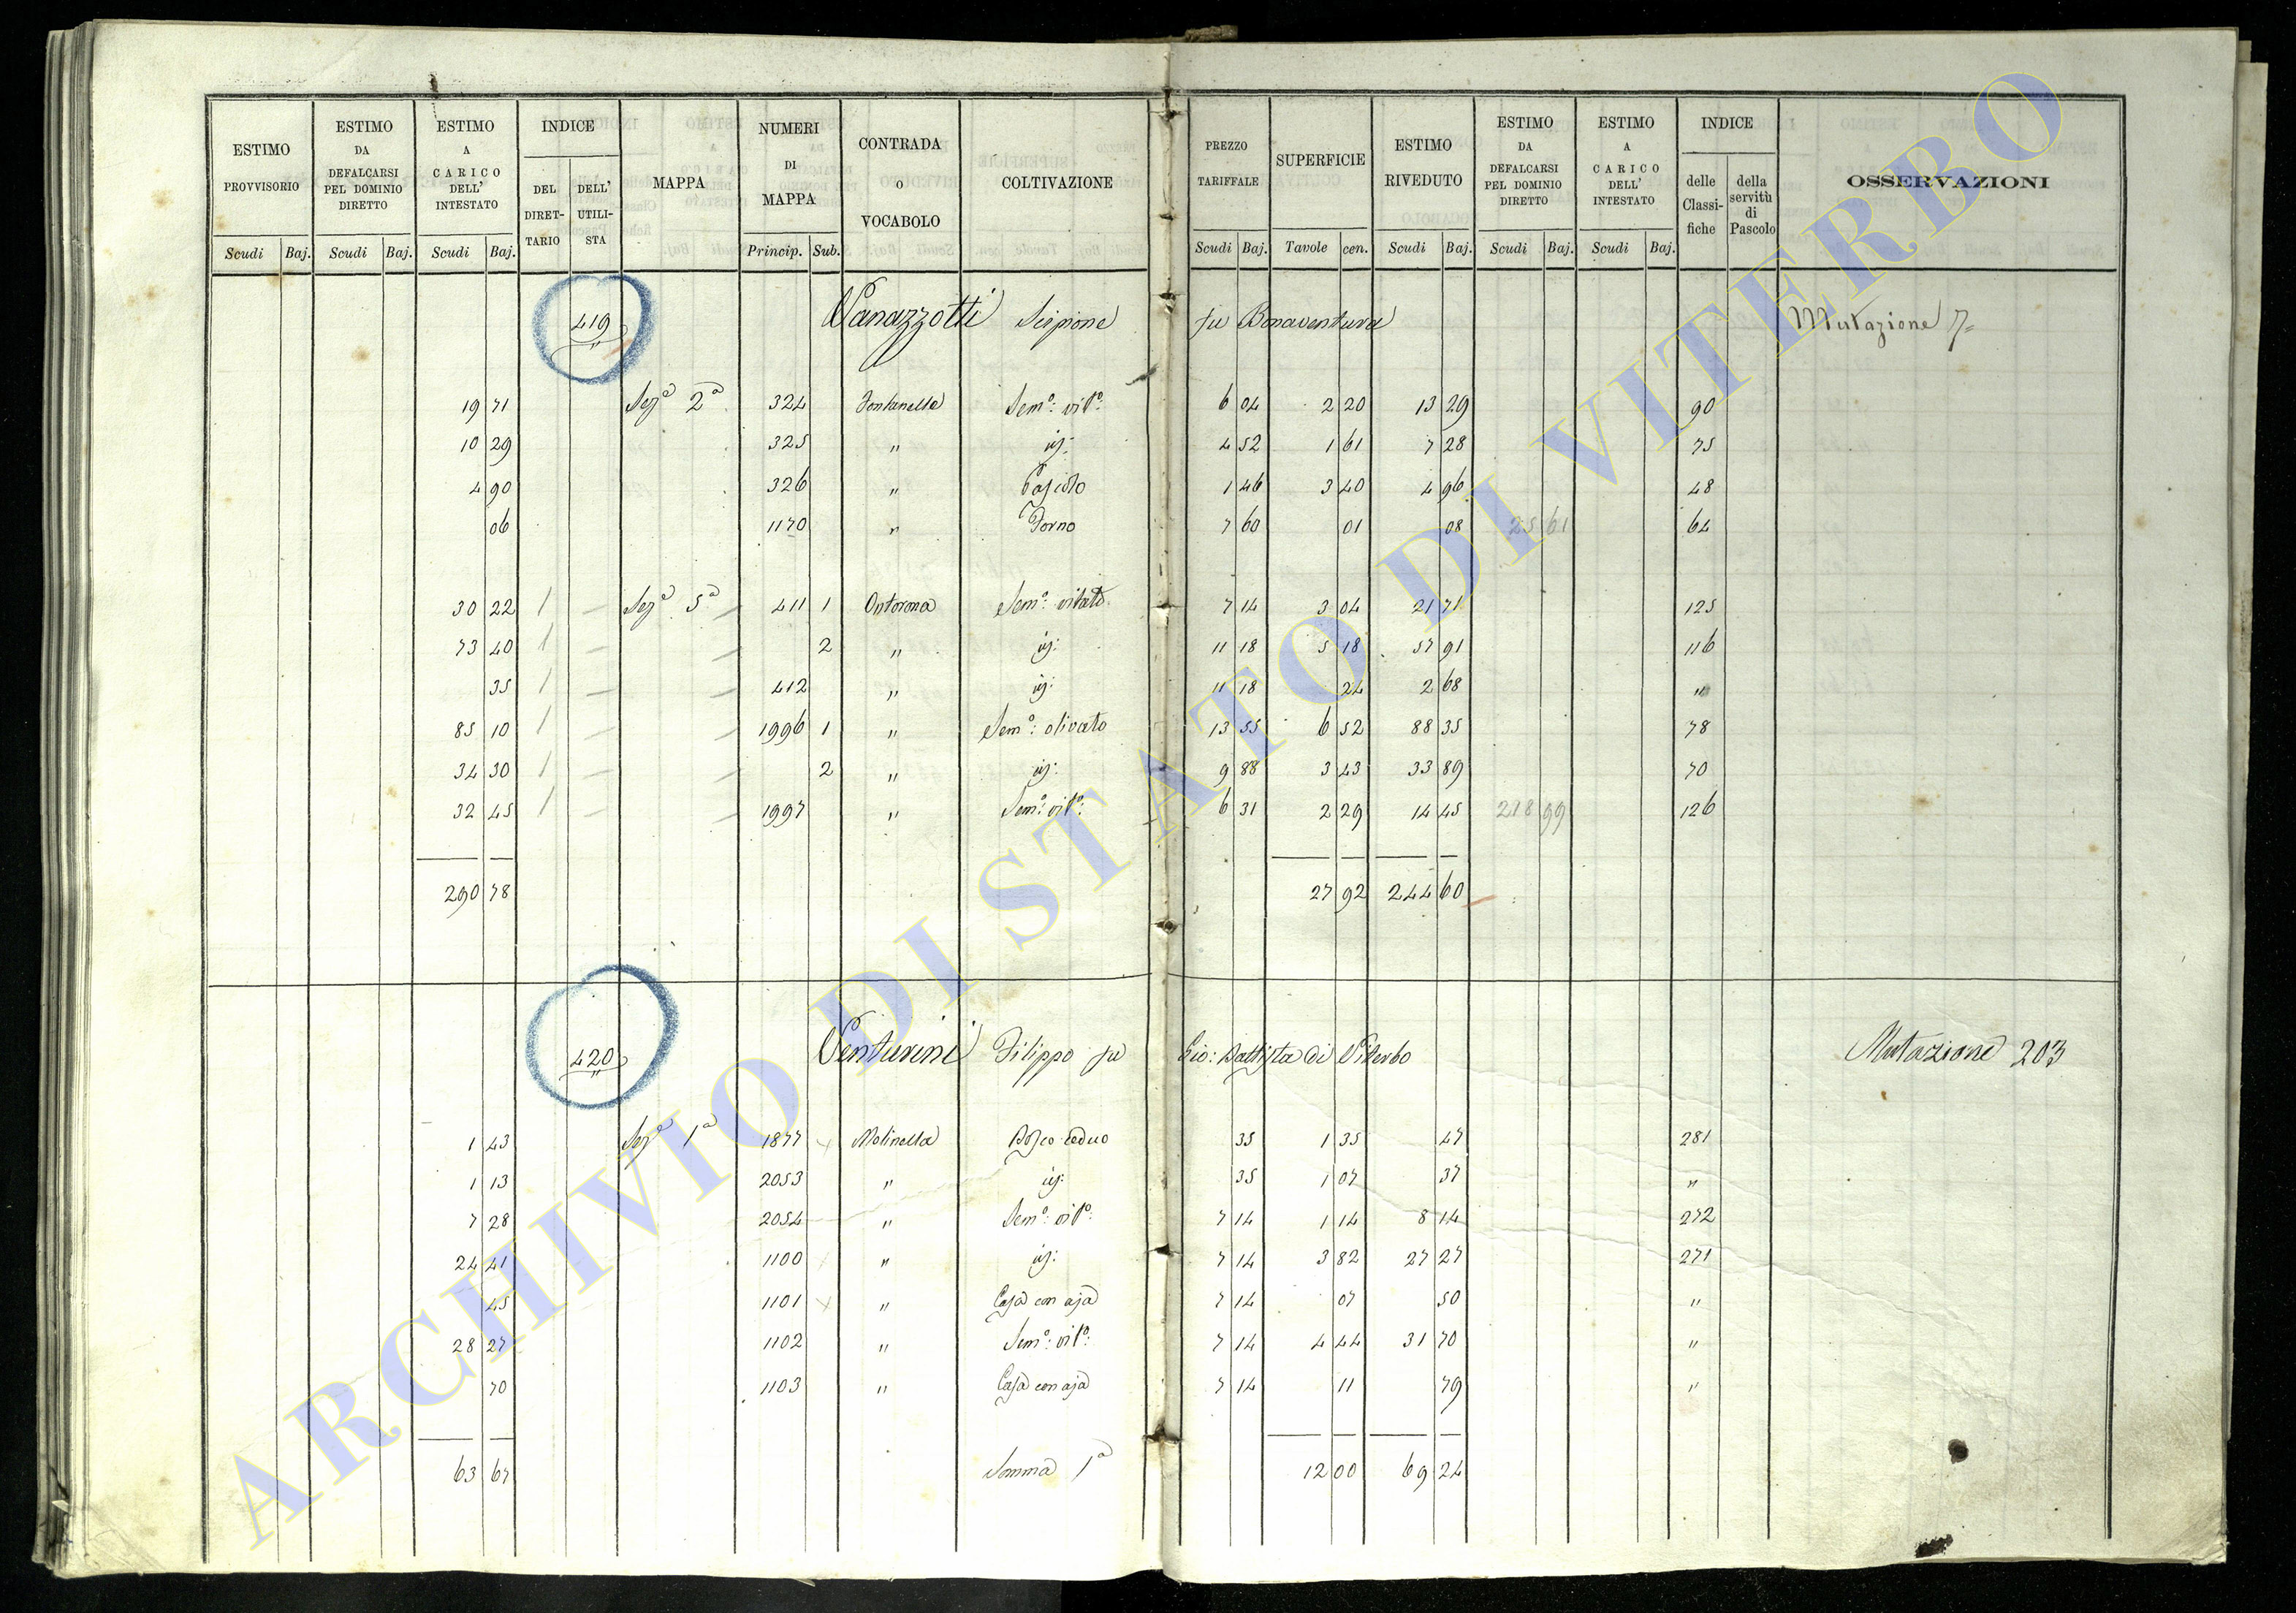 ESTIMO PROVVISORIO Scudi Baj.
ESTIMO DA DEFALCARSI PEL DOMINIO DIRETTO Scudi Baj.
ESTIMO A CARICO DELL' INTESTATO Scudi Baj.
INDICE DEL DIRETTARIO DELL' UTILISTA
MAPPA
NUMERI DI MAPPA Princip. Sub.
CONTRADA O VOCABOLO
COLTIVAZIONE
PREZZO TARIFFALE Scudi Baj.
SUPERFICIE Tavole cen.
ESTIMO RIVEDUTO Scudi Baj.
ESTIMO DA DEFALCARSI PEL DOMINIO DIRETTO Scudi Baj.
ESTIMO A CARICO DELL' INTESTATO Scudi Baj.
INDICE delle Classifiche della servitù di Pascolo
OSSERVAZIONI
419 Vanazzotti Scipione fu Bonaventura Mutazione 7
19 71 Sezª 2ª 324 Fontanella Semº: vitº: 6 04 2 20 13 29 90
10 29 325 " id: 4 52 1 61 7 28 75
4 90 326 " Pascolo 1 46 3 40 4 96 48
06 1170 " Forno 7 60 01 08 25 61 64
30 22 1 Sezª 5ª 411 1 Ontorona Semº: vitato 7 14 3 04 21 71 125
73 40 1 2 " id: 11 18 5 18 57 91 116
35 1 412 " id: 11 18 24 2 68 "
85 10 1 1996 1 " Semº: olivato 13 55 6 52 88 35 78
34 30 1 2 " id: 9 88 3 43 33 89 70
32 45 1 1997 " Semº: vitº: 6 31 2 29 14 45 218 99 126
290 78 27 92 244 60
420 Venturini Filippo fu Gio: Battista di Viterbo Mutazione 203
1 43 Sezª 1ª 1877 Molinella Bosco ceduo 35 1 35 47 281
1 13 2053 " id: 35 1 07 37 "
7 28 2054 " Semº: vitº: 7 14 1 14 8 14 272
24 41 1100 " id: 7 14 3 82 27 27 271
45 1101 " Casa con aja 7 14 07 50 "
28 27 1102 " Semº: vitº: 7 14 4 44 31 70 "
70 1103 " Casa con aja 7 14 11 79 "
63 67 Somma 1ª 12 00 69 24
ARCHIVIO DI STATO DI VITERBO